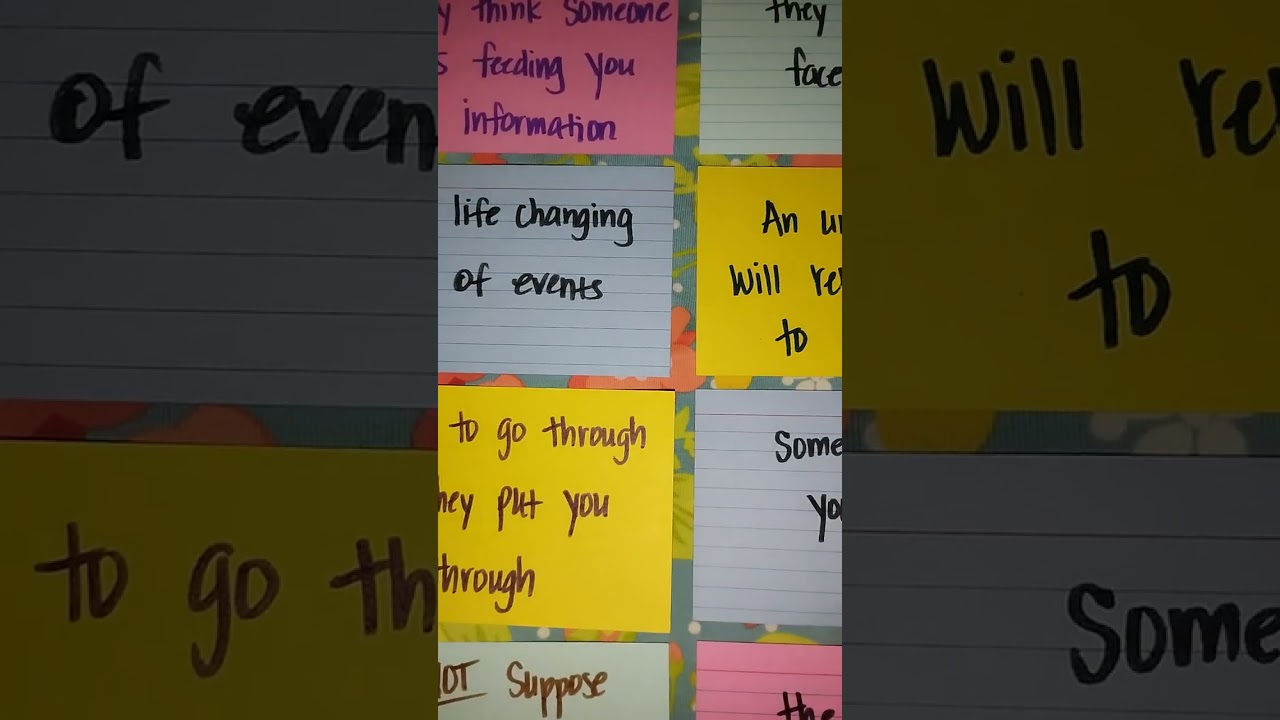 think someone
feeding you
information
they
face
life changing
of events
An
will
to
to go through
put you
through
Some
NOT Suppose
the
of
will
to
to go
Some